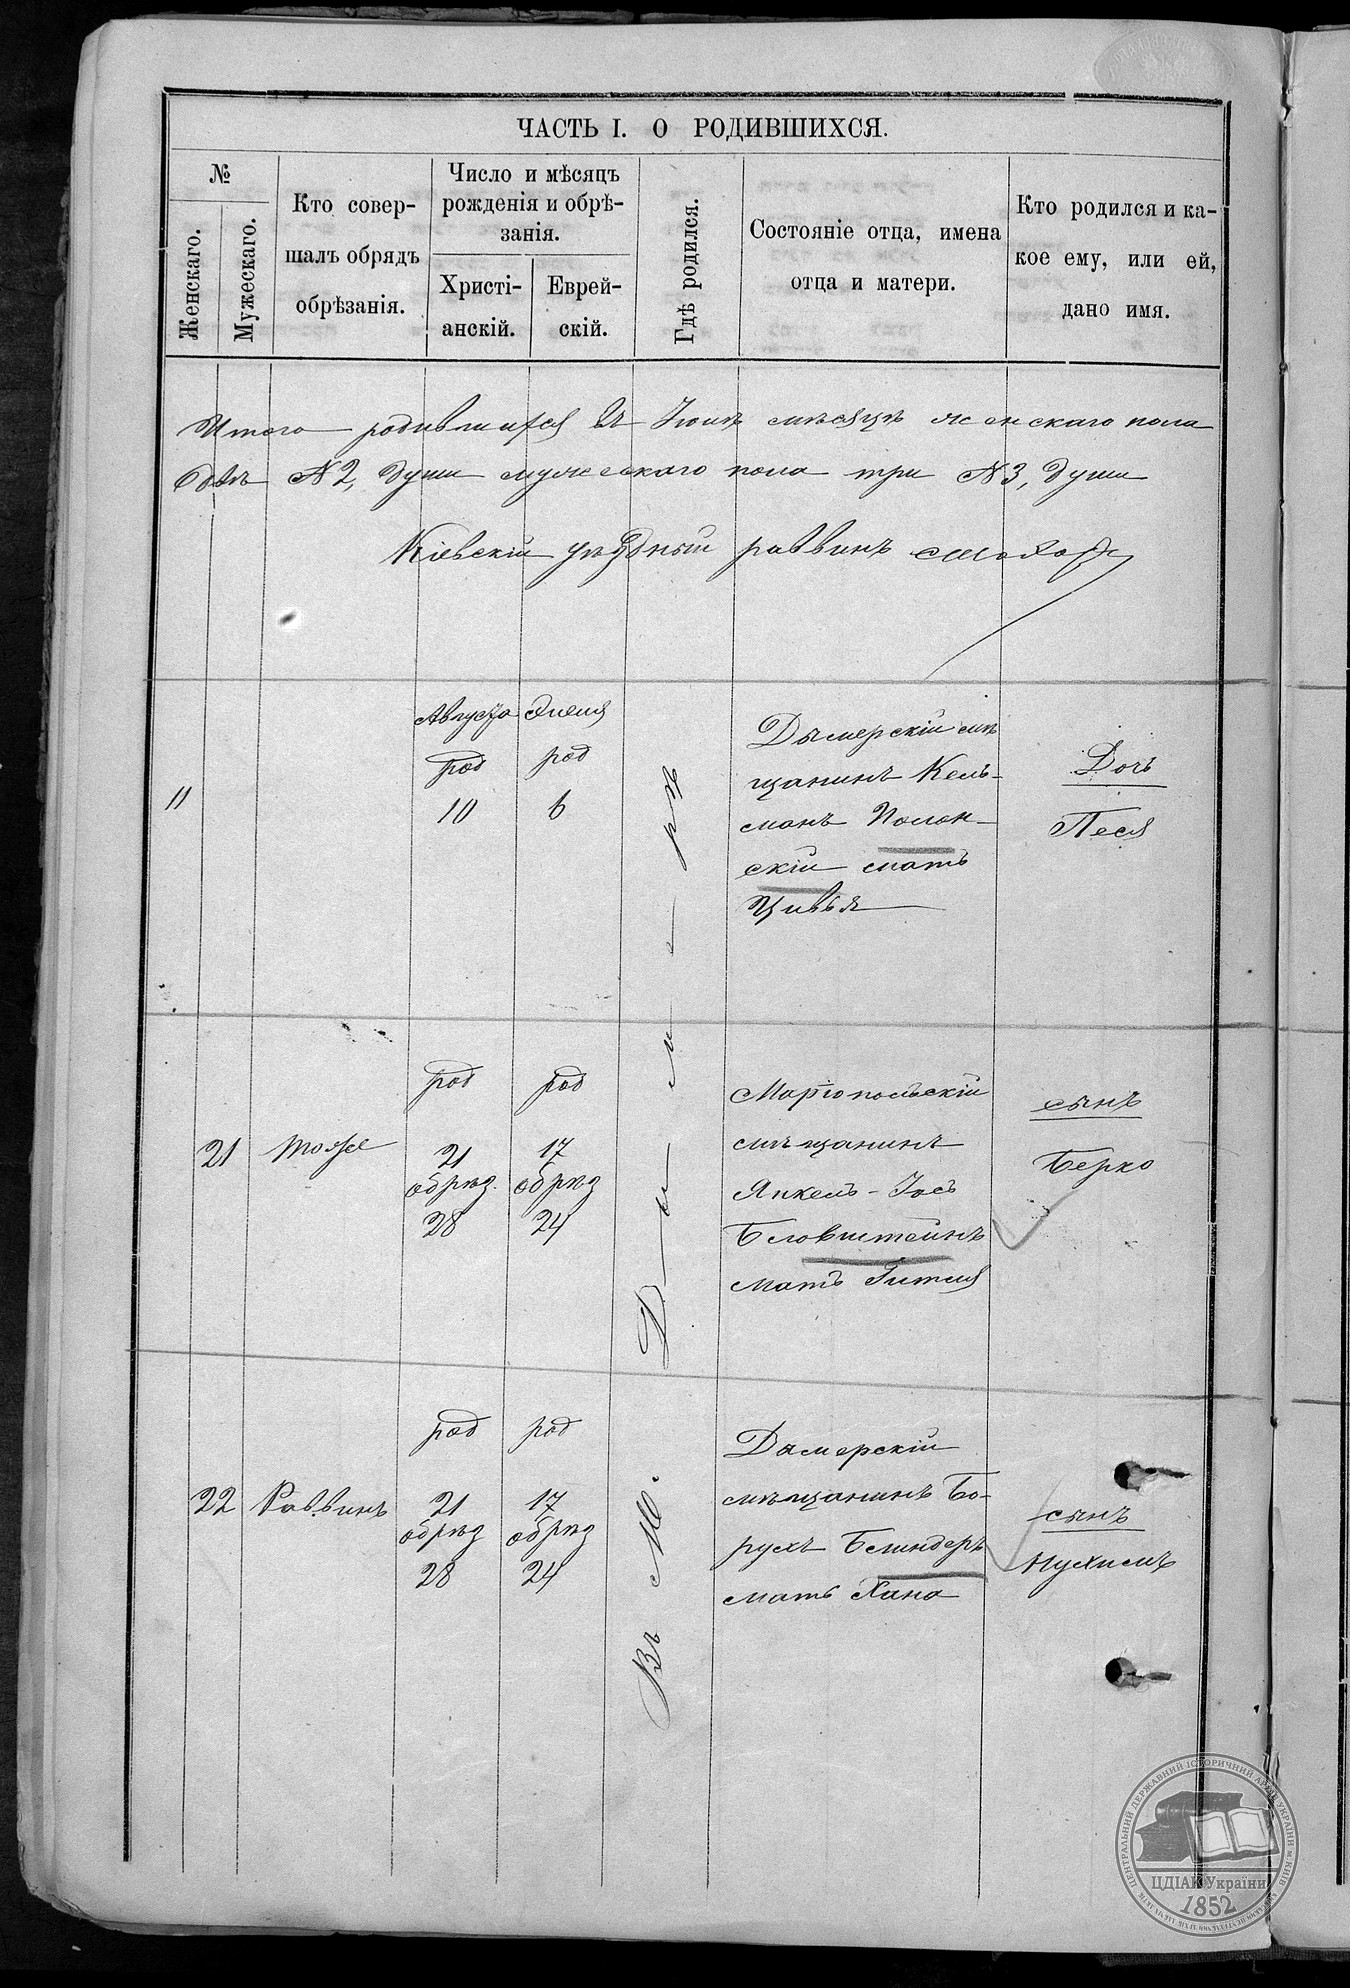 ЧАСТЬ I. О РОДИВШИХСЯ.
№
Женскаго.
Мужескаго.
Кто совер-
шалъ обрядъ
обрѣзанія.
Число и мѣсяцъ
рожденія и обрѣ-
занія.
Христі-
анскій.
Еврей-
скій.
Гдѣ родился.
Состояніе отца, имена
отца и матери.
Кто родился и ка-
кое ему, или ей,
дано имя.
Итого родившихся въ Іюлѣ мѣсяцѣ женскаго пола
двѣ №2, души мужескаго пола три №3, души
Кіевскій уѣздный раввинъ
Въ М. Димерѣ
11
Августа
род
10
Элеля
род
6
Дымерскій мѣ
щанинъ Кель-
манъ Полон-
скій мать
Цивья
Дочь
Песя
21
Мошко
род
21
обрѣз.
28
род
17
обрѣз
24
Маріюпольскій
мѣщанинъ
Янкель-Іосъ
Бловштейнъ
мать Гитля
сынъ
Берко
22
Раввинъ
род
21
обрѣз
28
род
17
обрѣз
24
Дымерскій
мѣщанинъ Бо-
рухъ Блиндеръ
мать Хана
сынъ
Нухимъ
ЦЕНТРАЛЬНИЙ ДЕРЖАВНИЙ ІСТОРИЧНИЙ АРХІВ УКРАЇНИ м. КИЇВ
ЦДІАК України
1852